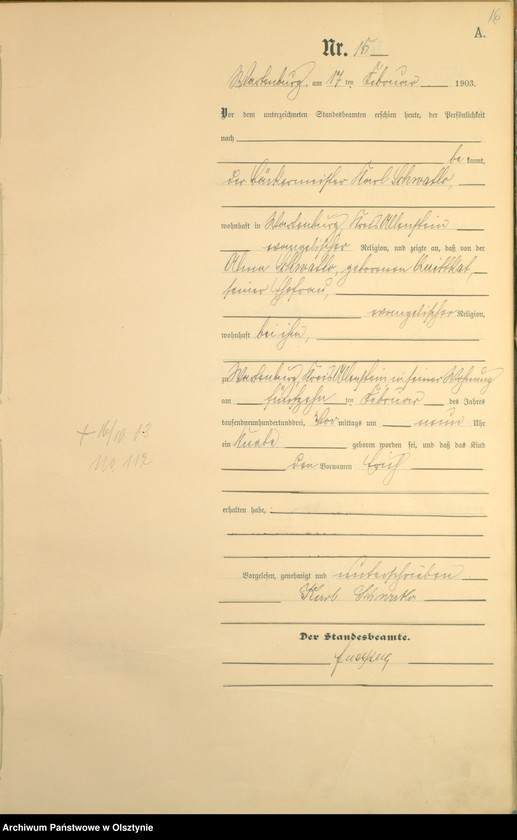 16
A.
Nr. 16
Wartenburg, am 17 ten Februar 1903.
Vor dem unterzeichneten Standesbeamten erschien heute, der Persönlichkeit
nach
be kannt,
der Bäckermeister Karl
wohnhaft in Wartenburg, Kreis Allenstein
evangelischer Religion, und zeigte an, daß von der
geborenen
seiner Ehefrau,
evangelischer Religion,
wohnhaft bei ihm,
zu Wartenburg, Kreis Allenstein in seiner Wohnung
am fünfzehn ten Februar des Jahres
tausendneunhundertunddrei, Vor mittags um neun Uhr
ein Knabe geboren worden sei, und daß das Kind
den Vornamen Erich
erhalten habe,
+ 16/10 03
No 112
Vorgelesen, genehmigt und unterschrieben
Karl
Der Standesbeamte.
Archiwum Państwowe w Olsztynie